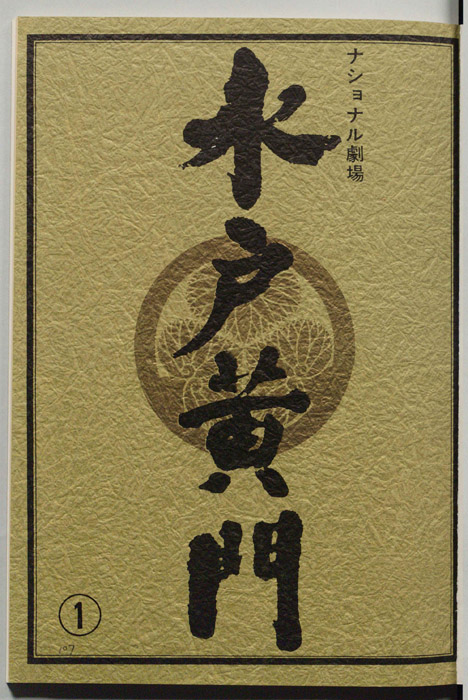 ナショナル劇場
水戸黄門
①
107